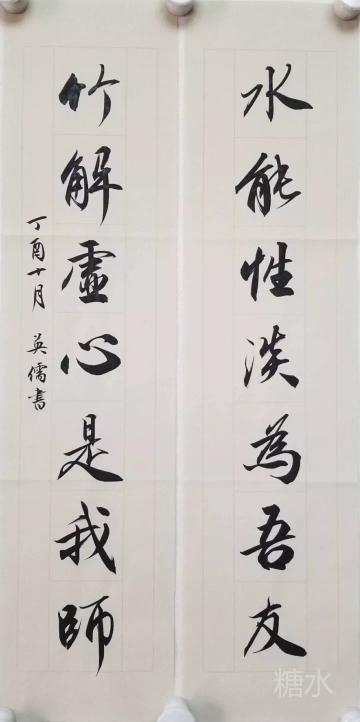 水能性淡為吾友
竹解虛心是我師
丁酉十月 英儒書
糖水